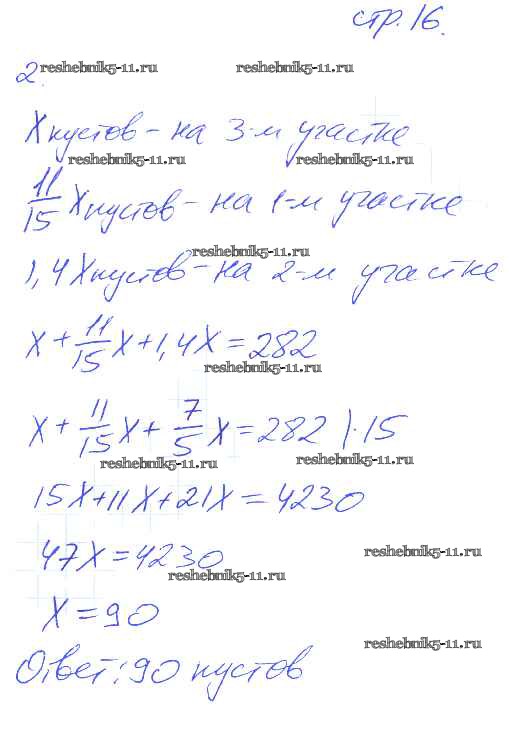 стр. 16.
reshebnik5-11.ru reshebnik5-11.ru
2.
X кустов - на 3-м участке
reshebnik5-11.ru reshebnik5-11.ru
11/15 X кустов - на 1-м участке
reshebnik5-11.ru
1,4X кустов - на 2-м участке
X + 11/15 X + 1,4X = 282
reshebnik5-11.ru
X + 11/15 X + 7/5 X = 282 |·15
reshebnik5-11.ru reshebnik5-11.ru
15X + 11X + 21X = 4230
47X = 4230
reshebnik5-11.ru
reshebnik5-11.ru
X = 90
reshebnik5-11.ru
Ответ: 90 кустов